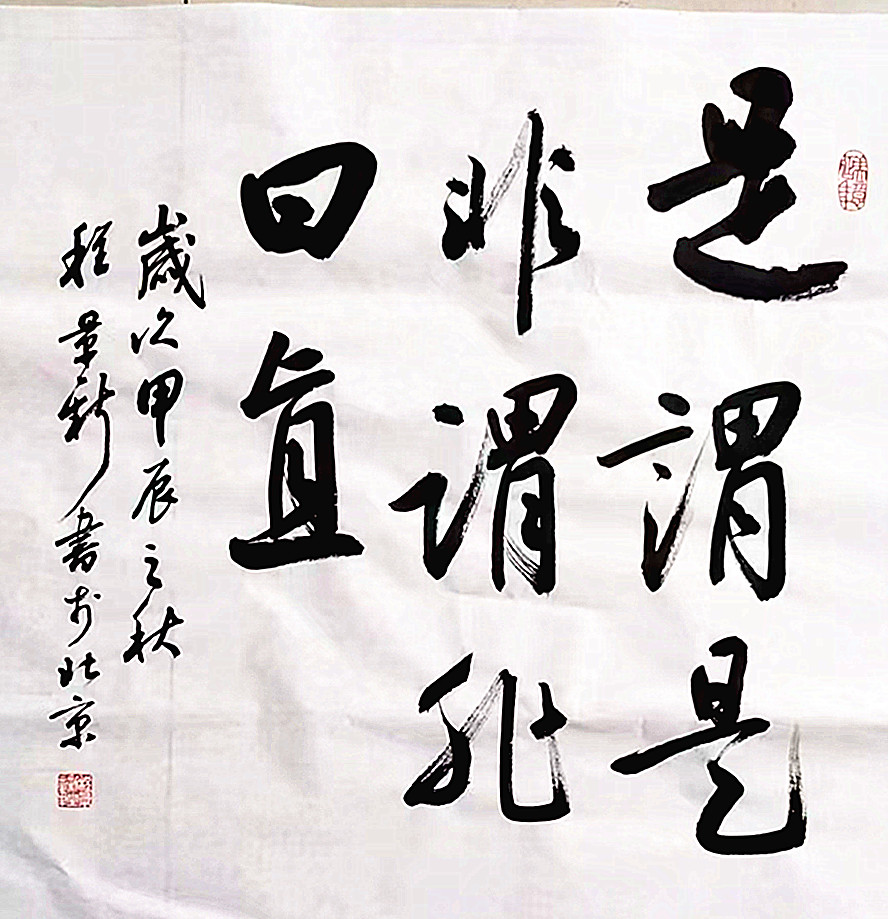 是謂是
非謂非
曰真
歲次甲辰之秋
程景新書於北京